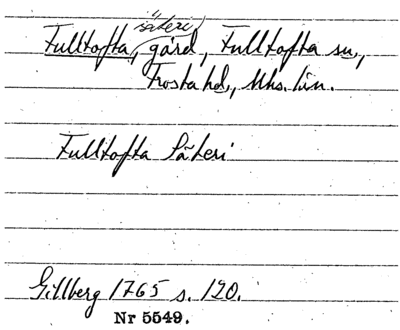 säteri
Fulltofta, gård, Fulltofta sn.,
Frosta hd., Mhs. län.
Fulltofta Säteri
Gillberg 1765 s. 120.
Nr 5549.